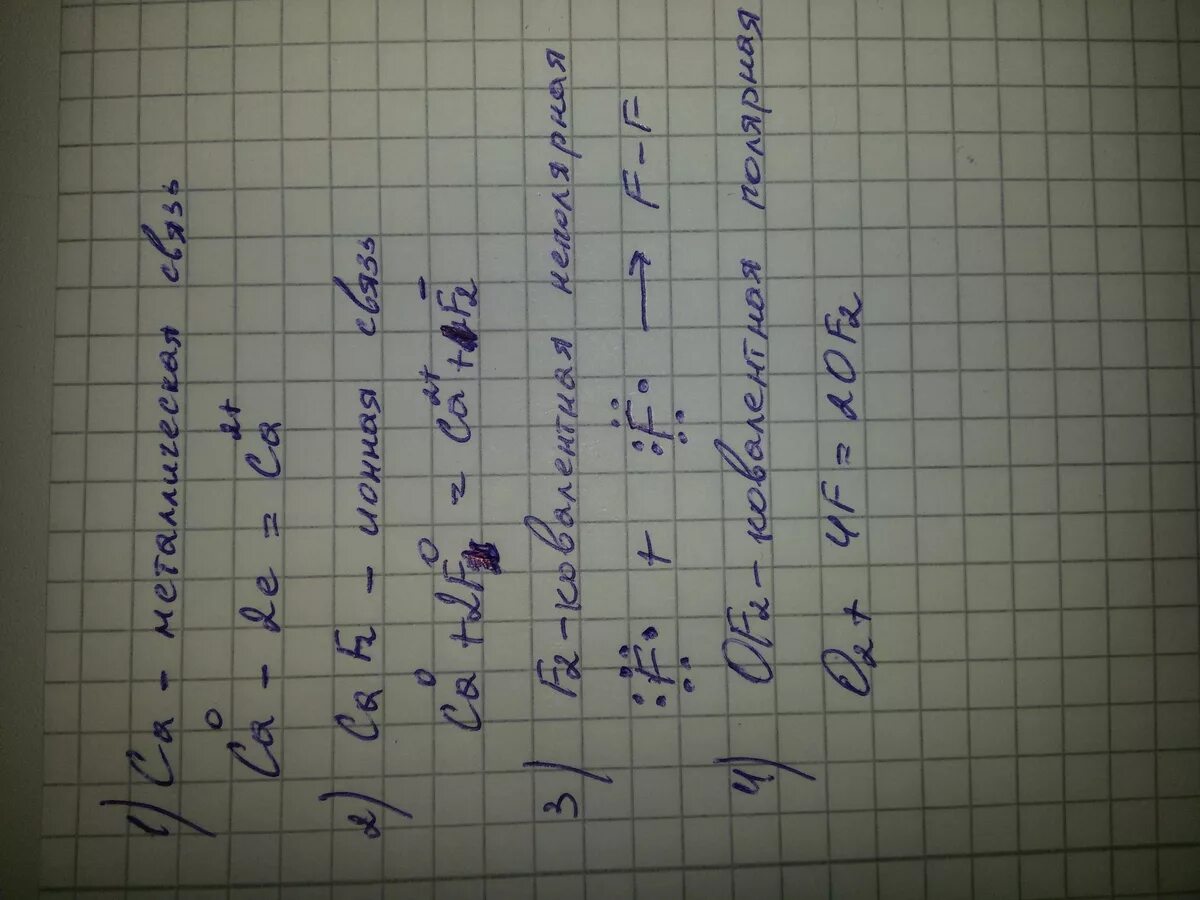 1) Ca - металлическая связь
Ca⁰ - 2e = Ca²⁺
2) CaF₂ - ионная связь
Ca⁰ + 2F⁰ = Ca²⁺ + F₂⁻
3) F₂ - ковалентная неполярная
:F· + :F· → F - F
4) OF₂ - ковалентная полярная
O₂ + 4F = 2OF₂